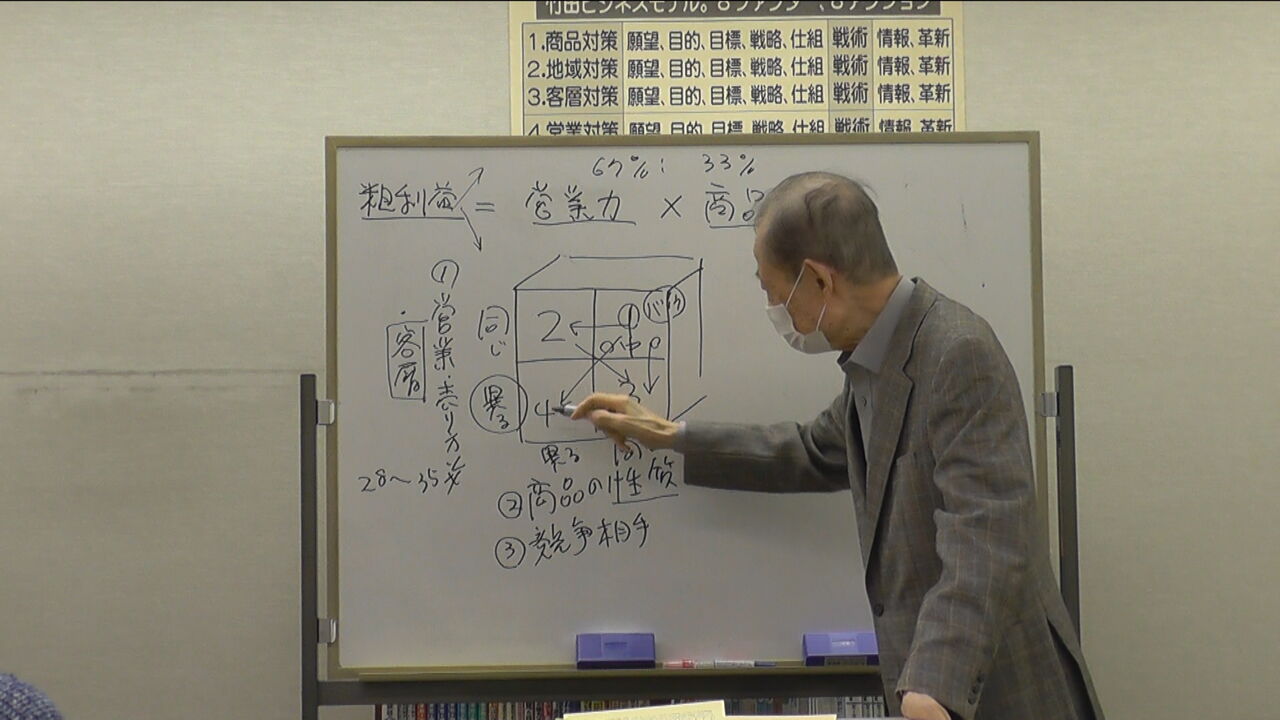 竹田ビジネスモデル。8ファクター、8アクション
1.商品対策 願望、目的、目標、戦略、仕組 戦術 情報、革新
2.地域対策 願望、目的、目標、戦略、仕組 戦術 情報、革新
3.客層対策 願望、目的、目標、戦略、仕組 戦術 情報、革新
4.営業対策 願望、目的、目標、戦略、仕組 戦術 情報、革新
67%: 33%
粗利益 = 営業力 × 商品
①営業・売り方
客層
28〜35才
同じ
異る
2
1
4
3
異る 同
②商品の性質
③競争相手